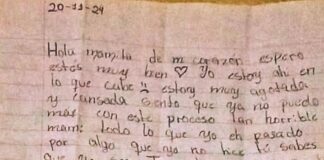 20-11-24
Hola mamita de mi corazon espero
estes muy bien ♡ Yo estoy ahi en
lo que cabe estoy muy agotada
y cansada siento que ya no puedo
mas con este proceso tan horrible
mami todo lo que yo eh pasado
por algo que yo no hice tu sabes
que